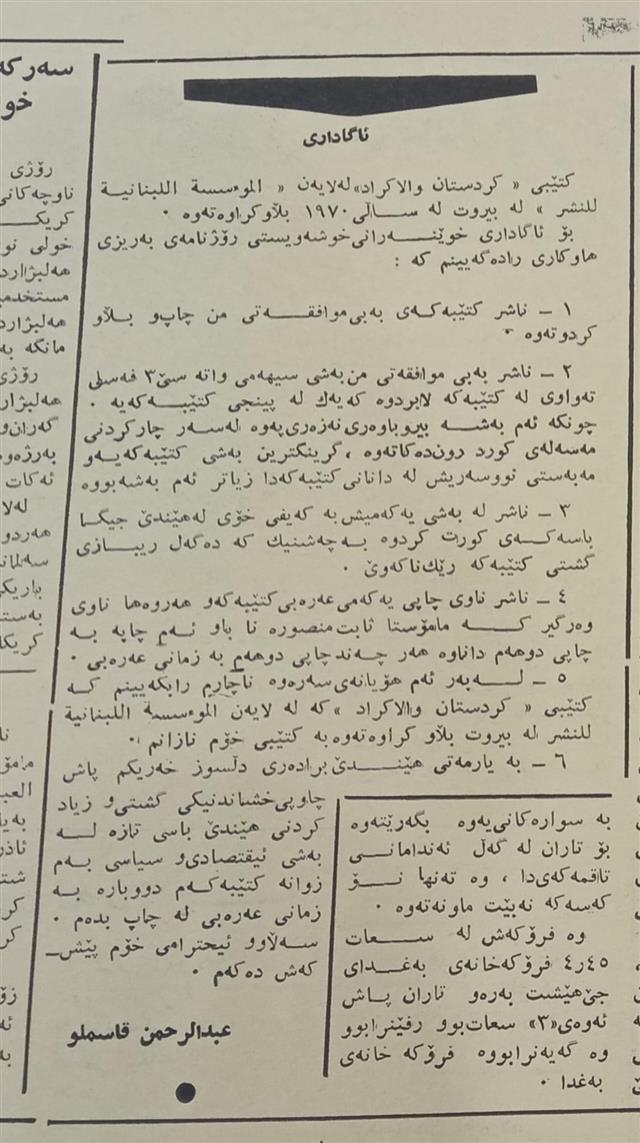 ئاگاداری
کتێبی « کردستان والاکراد» لەلایەن « الموءسسة اللبنانیة
للنشر » لە بیروت لە ساڵی ١٩٧٠ بڵاوکراوەتەوە ٠
بۆ ئاگاداری خوێنەرانی خوشەویستی رۆژنامەی بەریزی
هاوکاری رادەگەیینم کە :
١ ـ ناشر کتێبەکەی بەبی موافقەتی من چاپ و بڵاو
کردوتەوە ٠
٢ ـ ناشر بەبی موافقەتی من بەشی سیهەمی واتە سێ ٣ فەسلی
تەواوی لە کتێبەکە لابردوە کەیەك لە پینجی کتێبەکەیە ٠
چونکە ئەم بەشە بیروباوەری نەزەری پەوە لەسەر چارکردنی
مەسەلەی کورد رون دەکاتەوە ، گرینگترین بەشی کتێبەکەیەو
مەبەستی نووسەریش لە دانانی کتێبەکەدا زیاتر ئەم بەشەبووە
٣ ـ ناشر لە بەشی یەکەمیش بە کەیفی خۆی لەهێندێ جیگا
باسەکەی کورت کردوە بەچەشنیك کە دەگەل ریبازی
گشتی کتێبەکە رێك ناکەوێ ٠
٤ ـ ناشر ناوی چاپی یەکەمی عەرەبی کتێبەکەو هەروەها ناوی
وەرگیر کە مامۆستا ثابت منصورە نا باو ئەم چاپە بە
چاپی دوهەم داناوە هەر چەند چاپی دوهەم بە زمانی عەرەبی ٠
٥ ـ لەبەر ئەم هۆیانەی سەرەوە ناچارم رابگەیینم کە
کتێبی « کردستان والاکراد »کە لە لایەن الموءسسة اللبنانیة
للنشر لە بیروت بڵاو کراوەتەوە بە کتێبی خۆم نازانم ٠
٦ ـ بە یارمەتی هێندێ برادەری دڵسوز خەریکم پاش
چاوپی خشاندنیکی گشتی و زیاد
کردنی هێندێ باسی تازە لە
بەشی ئیقتصادی و سیاسی بەم
زوانە کتێبەکەم دووبارە بە
زمانی عەرەبی لە چاپ بدەم ٠
سەڵاوو ئیحترامی خۆم پێش-
کەش دەکەم ٠
عبدالرحمن قاسملو
بە سوارەکانی یەوە بگەرێتەوە
بۆ تاران لە گەڵ ئەندامانی
تاقمەکەی دا ، وە تەنها نۆ
کەسەکە نەبێت ماونەتەوە ٠
وە فرۆکەش لە سعات
٤٥ر٤ فرۆکەخانەی بەغدای
جێ هێشت بەرەو تاران پاش
ئەوەی «٣» سعات بوو رفێنرابوو
وە گەیەنرابووە فرۆکە خانەی
بەغدا ٠